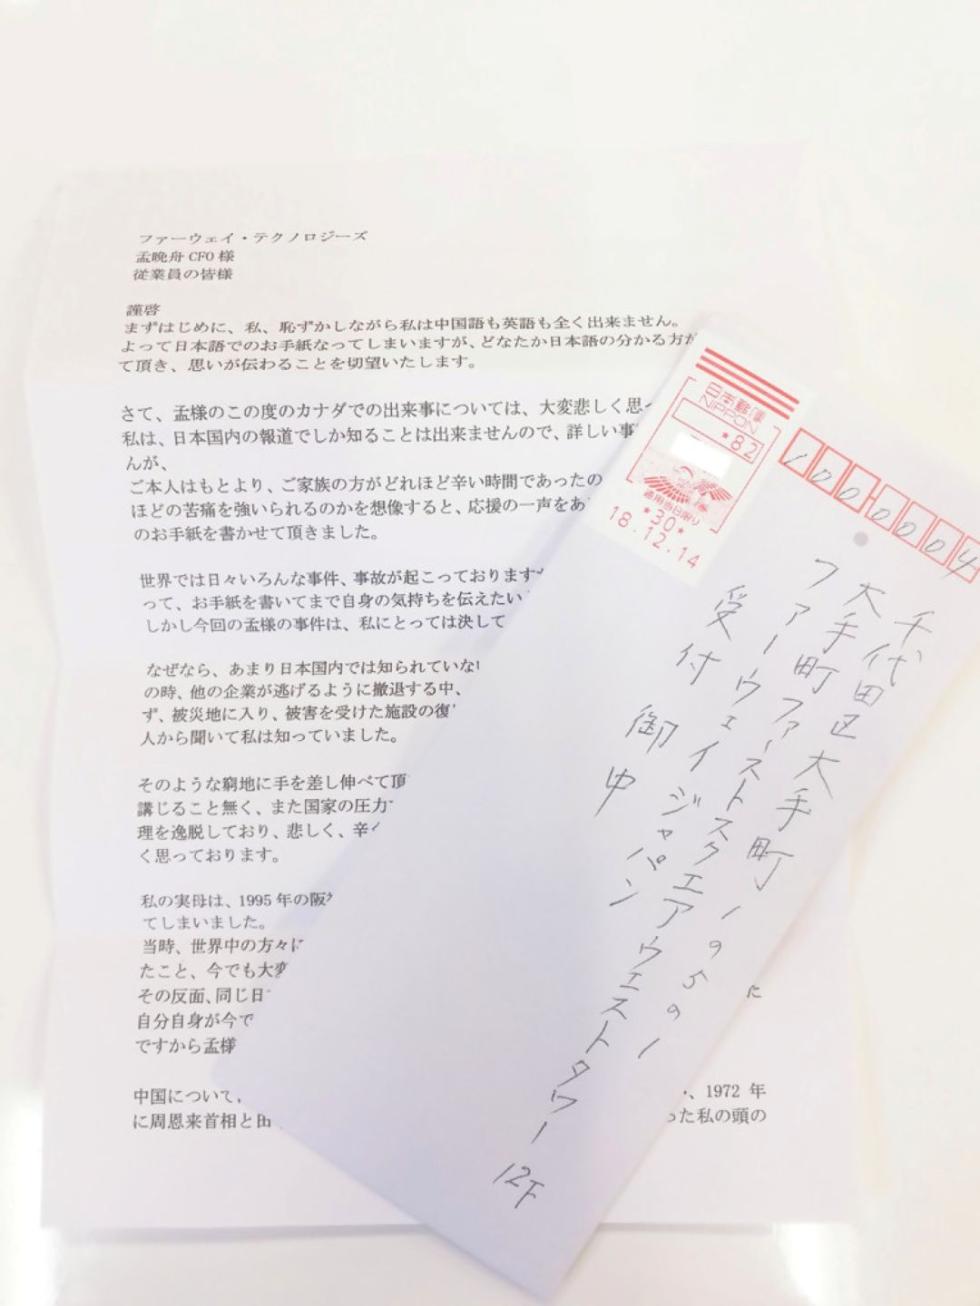 ファーウェイ・テクノロジーズ
孟晩舟 CFO 様
従業員の皆様
謹啓
まずはじめに、私、恥ずかしながら私は中国語も英語も全く出来ません。
よって日本語でのお手紙なってしまいますが、どなたか日本語の分かる方が
て頂き、思いが伝わることを切望いたします。
さて、孟様のこの度のカナダでの出来事については、大変悲しく思っ
私は、日本国内の報道でしか知ることは出来ませんので、詳しい事
んが、
ご本人はもとより、ご家族の方がどれほど辛い時間であったの
ほどの苦痛を強いられるのかを想像すると、応援の一声をあ
のお手紙を書かせて頂きました。
世界では日々いろんな事件、事故が起こっております
って、お手紙を書いてまで自身の気持ちを伝えたい
しかし今回の孟様の事件は、私にとっては決して
なぜなら、あまり日本国内では知られていない
の時、他の企業が逃げるように撤退する中、
ず、被災地に入り、被害を受けた施設の復
人から聞いて私は知っていました。
そのような窮地に手を差し伸べて頂
講じること無く、また国家の圧力
理を逸脱しており、悲しく、辛く
く思っております。
私の実母は、1995 年の阪
てしまいました。
当時、世界中の方々に
たこと、今でも大変
その反面、同じ日
自分自身が今で
ですから孟様
中国について、
、1972 年
に周恩来首相と田
った私の頭の
日本郵便
NIPPON
*82
適用当日限り
*30*
18.12.14
100-0004
千代田区大手町1の5の1
大手町ファーストスクエアウエストタワー 12F
ファーウェイジャパン
受付 御中
に